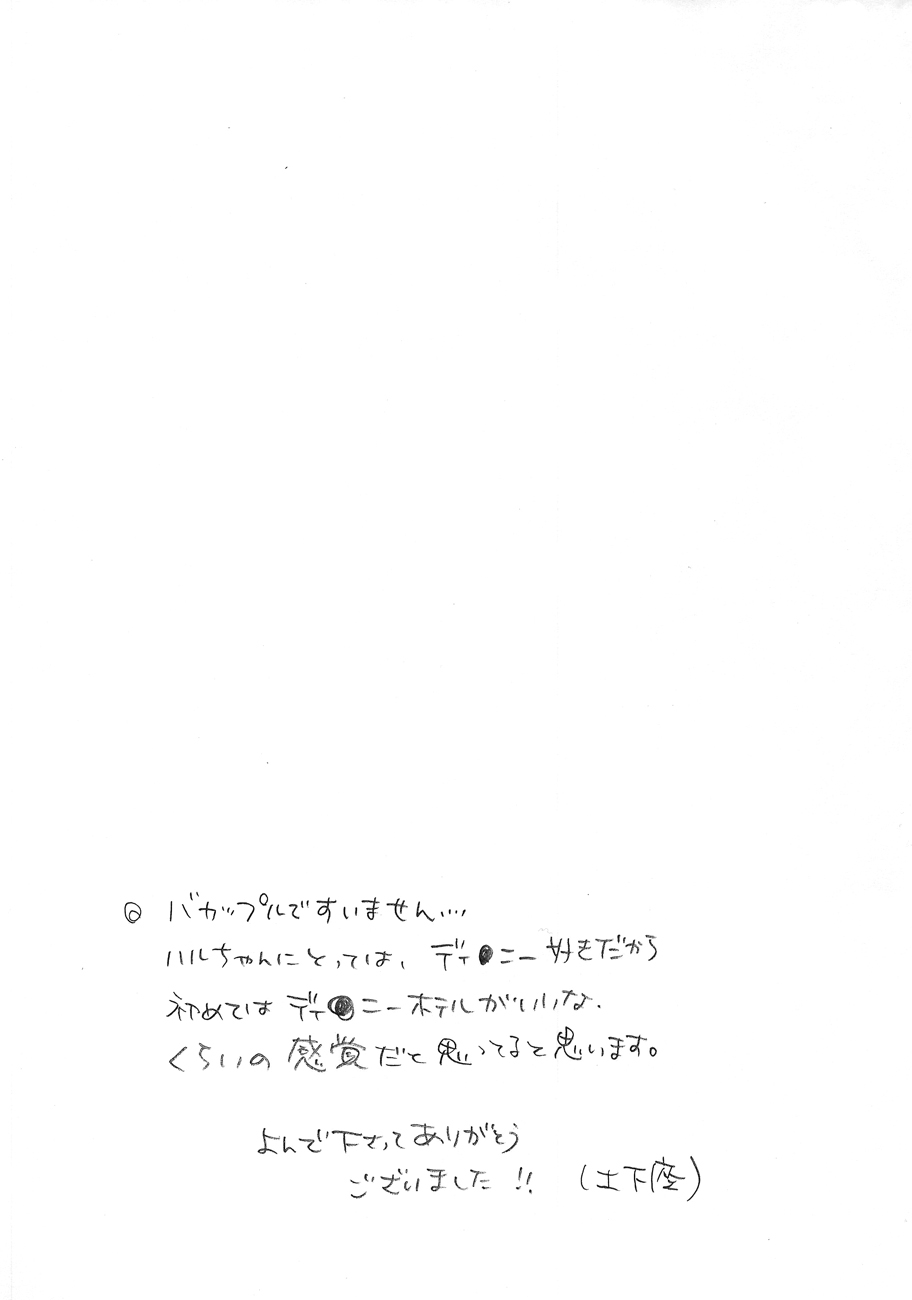 ◎ バカップルですいません…
ハルちゃんにとっては、ディ●ニー好きだから
初めてはディ●ニーホテルがいいな、
くらいの感覚だと思ってると思います。
よんで下さってありがとう
ございました!! (土下座)